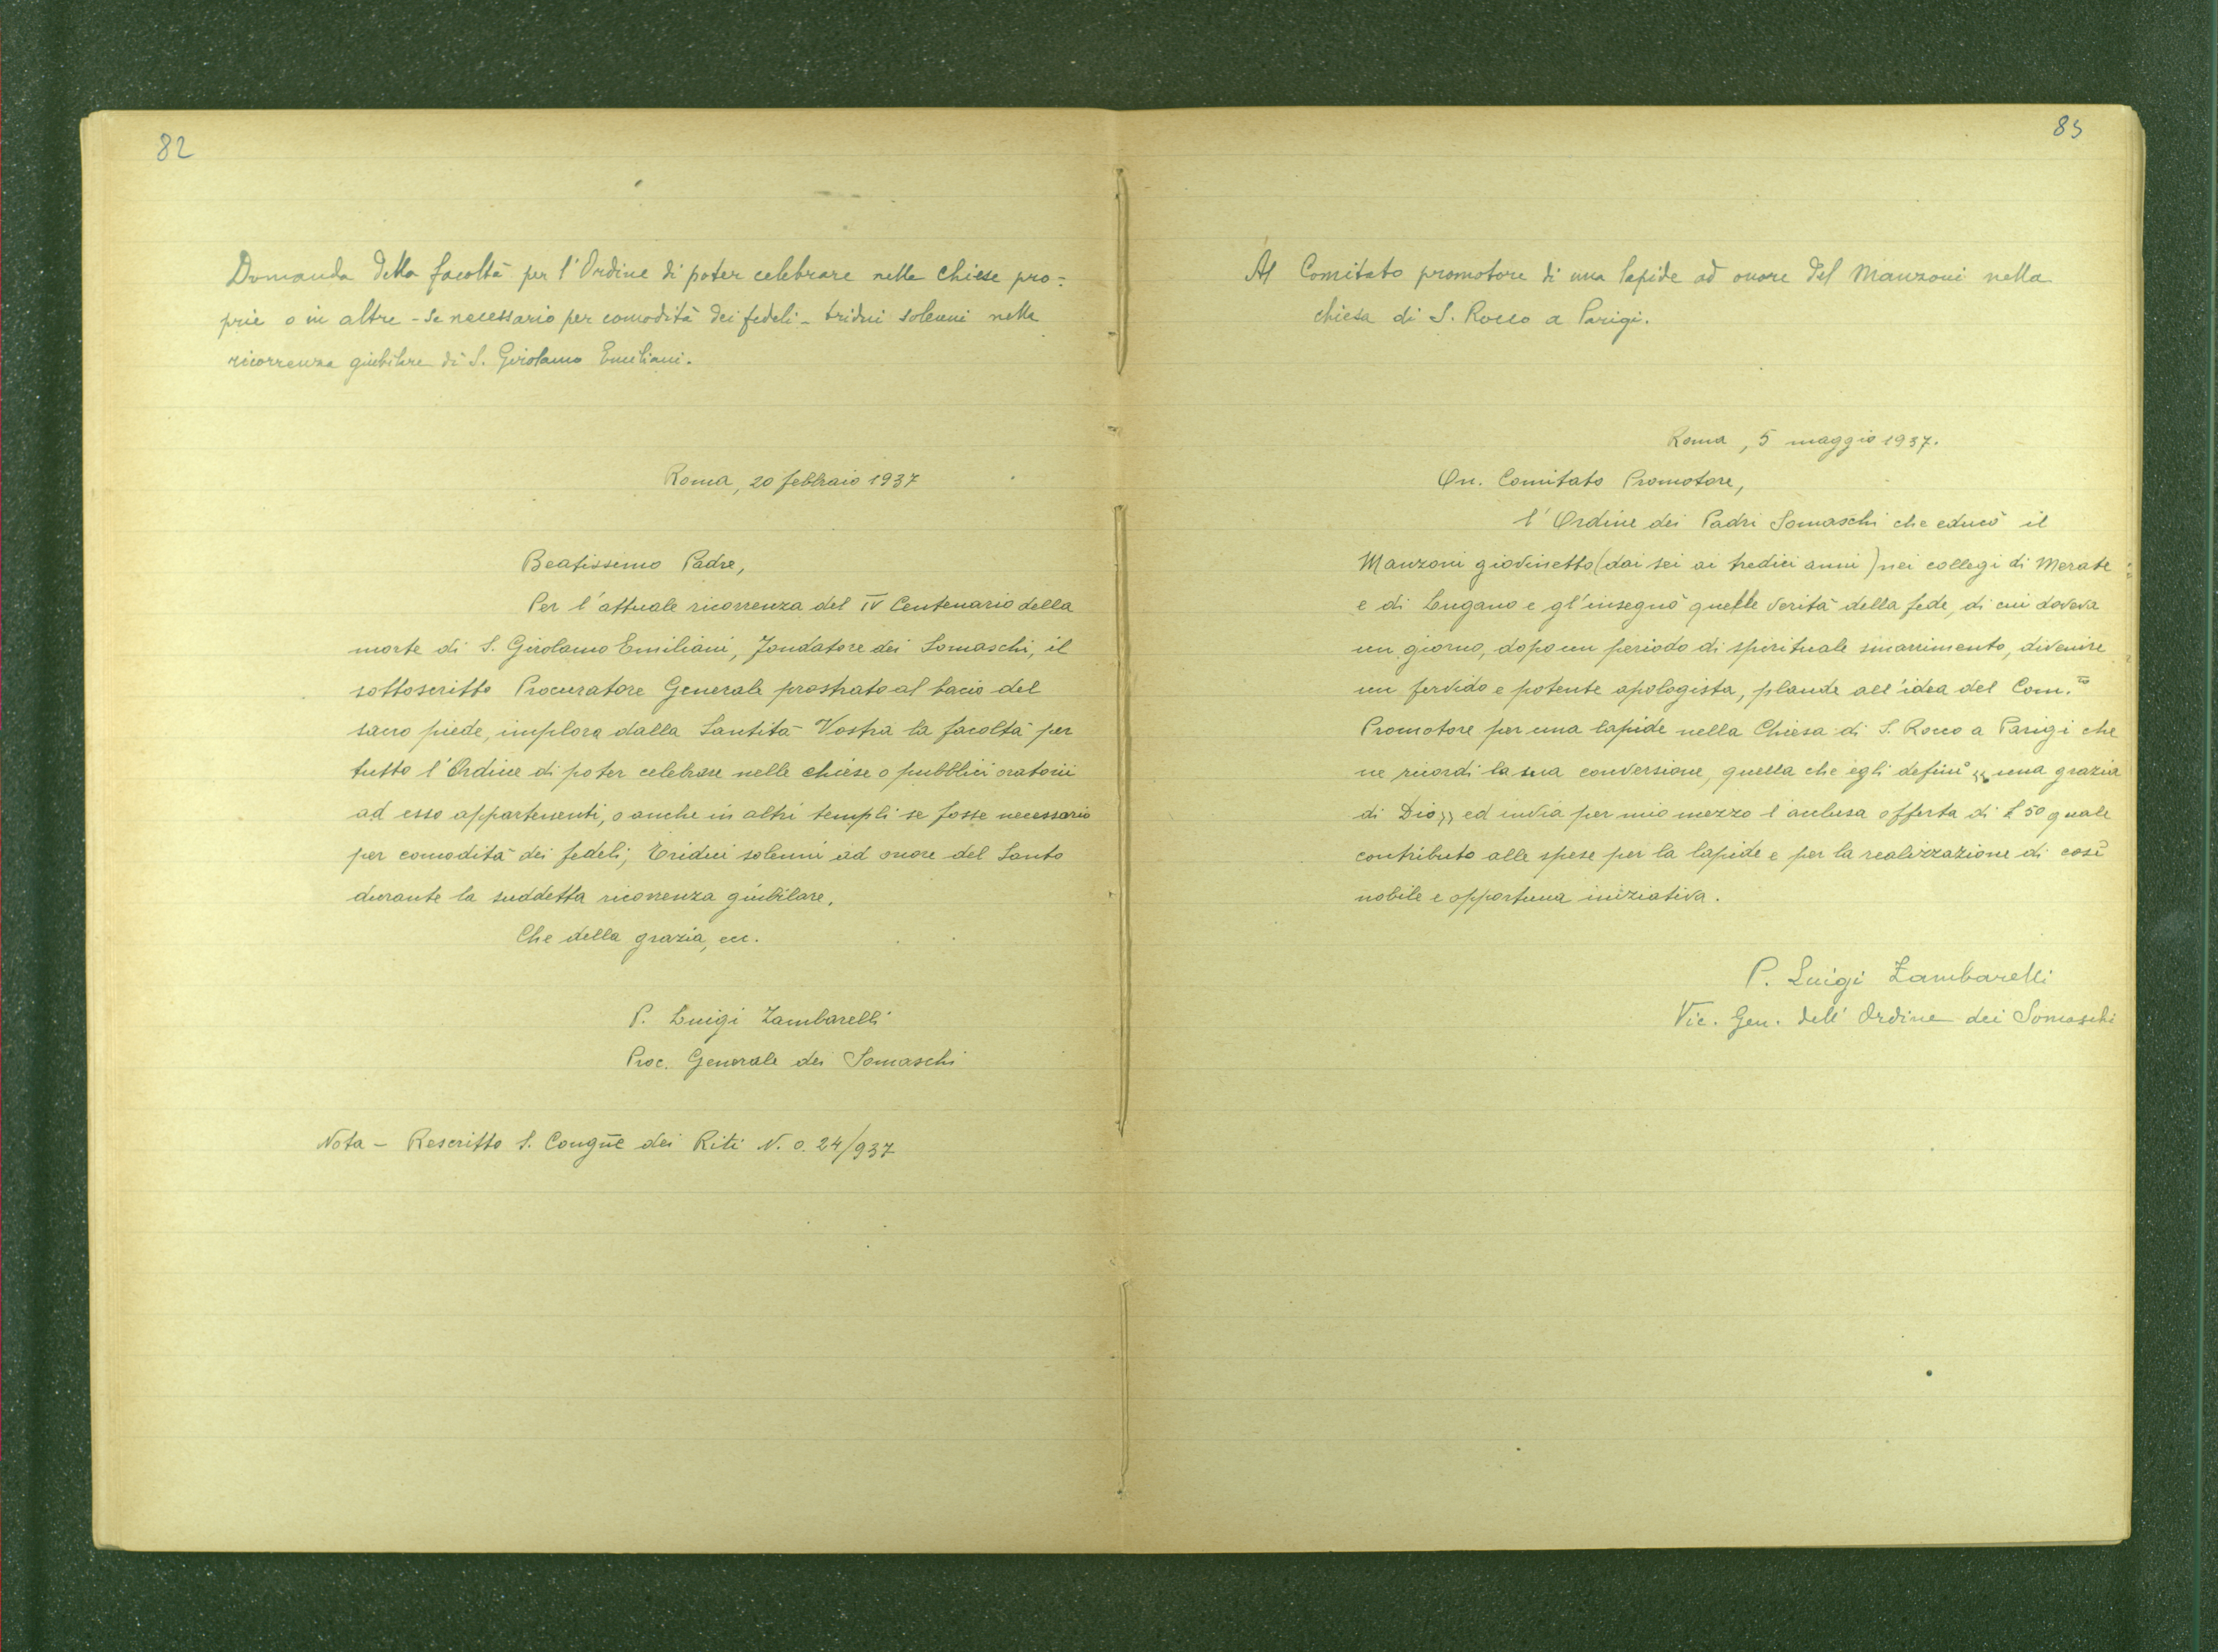 82
Domanda della facoltà per l'Ordine di poter celebrare nelle chiese pro=
prie o in altre - se necessario per comodità dei fedeli - tridui solenni nella
ricorrenza giubilare di S. Girolamo Emiliani.
Roma, 20 febbraio 1937
Beatissimo Padre,
Per l'attuale ricorrenza del IV Centenario della
morte di S. Girolamo Emiliani, Fondatore dei Somaschi, il
sottoscritto Procuratore Generale prostrato al bacio del
sacro piede, implora dalla Santità Vostra la facoltà per
tutto l'Ordine di poter celebrare nelle chiese o pubblici oratorii
ad esso appartenenti, o anche in altri templi se fosse necessario
per comodità dei fedeli, Tridui solenni ad onore del Santo
durante la suddetta ricorrenza giubilare.
Che della grazia, ecc.
P. Luigi Zambarelli
Proc. Generale dei Somaschi
Nota - Rescritto S. Congne dei Riti N. o. 24/937
83
Al Comitato promotore di una lapide ad onore del Manzoni nella
chiesa di S. Rocco a Parigi.
Roma, 5 maggio 1937.
On. Comitato Promotore,
l'Ordine dei Padri Somaschi che educò il
Manzoni giovinetto (dai sei ai tredici anni) nei collegi di Merate
e di Lugano e gl'insegnò quelle verità della fede, di cui doveva
un giorno, dopo un periodo di spirituale smarrimento, divenire
un fervido e potente apologista, plaude all'idea del Com.to
Promotore per una lapide nella Chiesa di S. Rocco a Parigi che
ne ricordi la sua conversione, quella che egli definì « una grazia
di Dio » ed invia per mio mezzo l'acclusa offerta di £ 50 quale
contributo alle spese per la lapide e per la realizzazione di così
nobile e opportuna iniziativa.
P. Luigi Zambarelli
Vic. Gen. dell'Ordine dei Somaschi